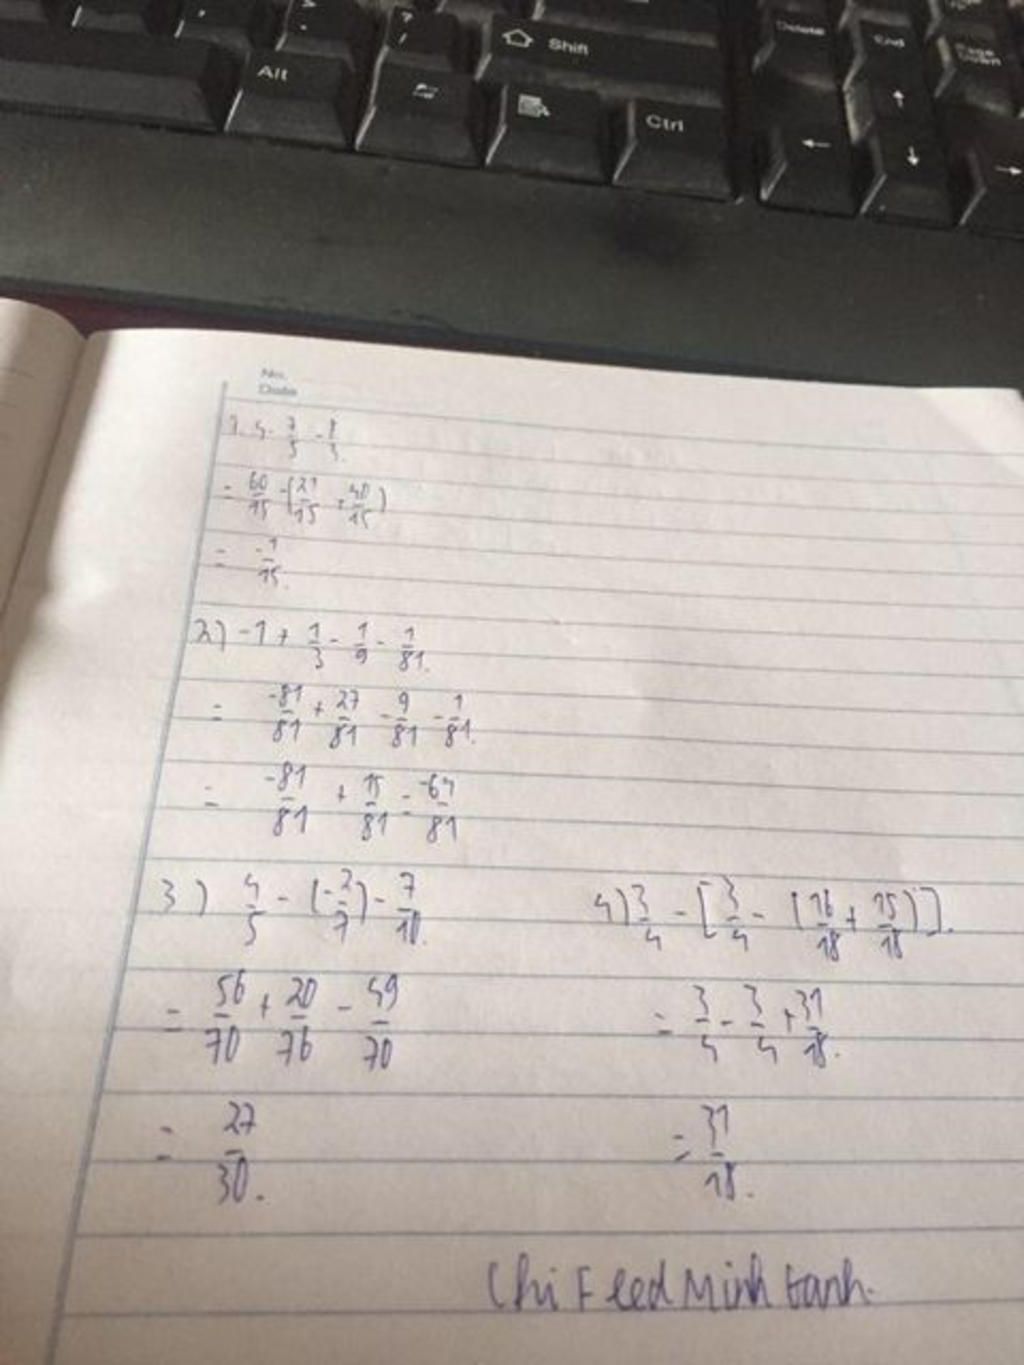 Alt
Shift
Ctrl
Delete
End
Page Down
No.
Date
1. 4 - 7/5 - 8/3.
= 60/15 - (21/15 + 40/15)
= -1/15.
2) -1 + 1/3 - 1/9 - 1/81.
= -81/81 + 27/81 - 9/81 - 1/81.
= -81/81 + 15/81 = -64/81
3) 4/5 - (-2/7) - 7/10.
= 56/70 + 20/76 - 49/70
= 27/30.
4) 3/4 - [3/4 - (16/18 + 15/18)].
= 3/4 - 3/4 + 31/18.
= 31/18.
Chi Feed Minh tanh.